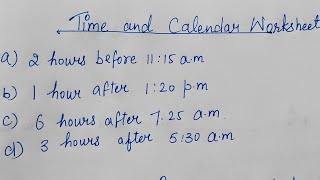 Time and Calendar Worksheet
a) 2 hours before 11:15 a.m
b) 1 hour after 1:20 p.m
c) 6 hours after 7.25 a.m.
d) 3 hours after 5:30 a.m